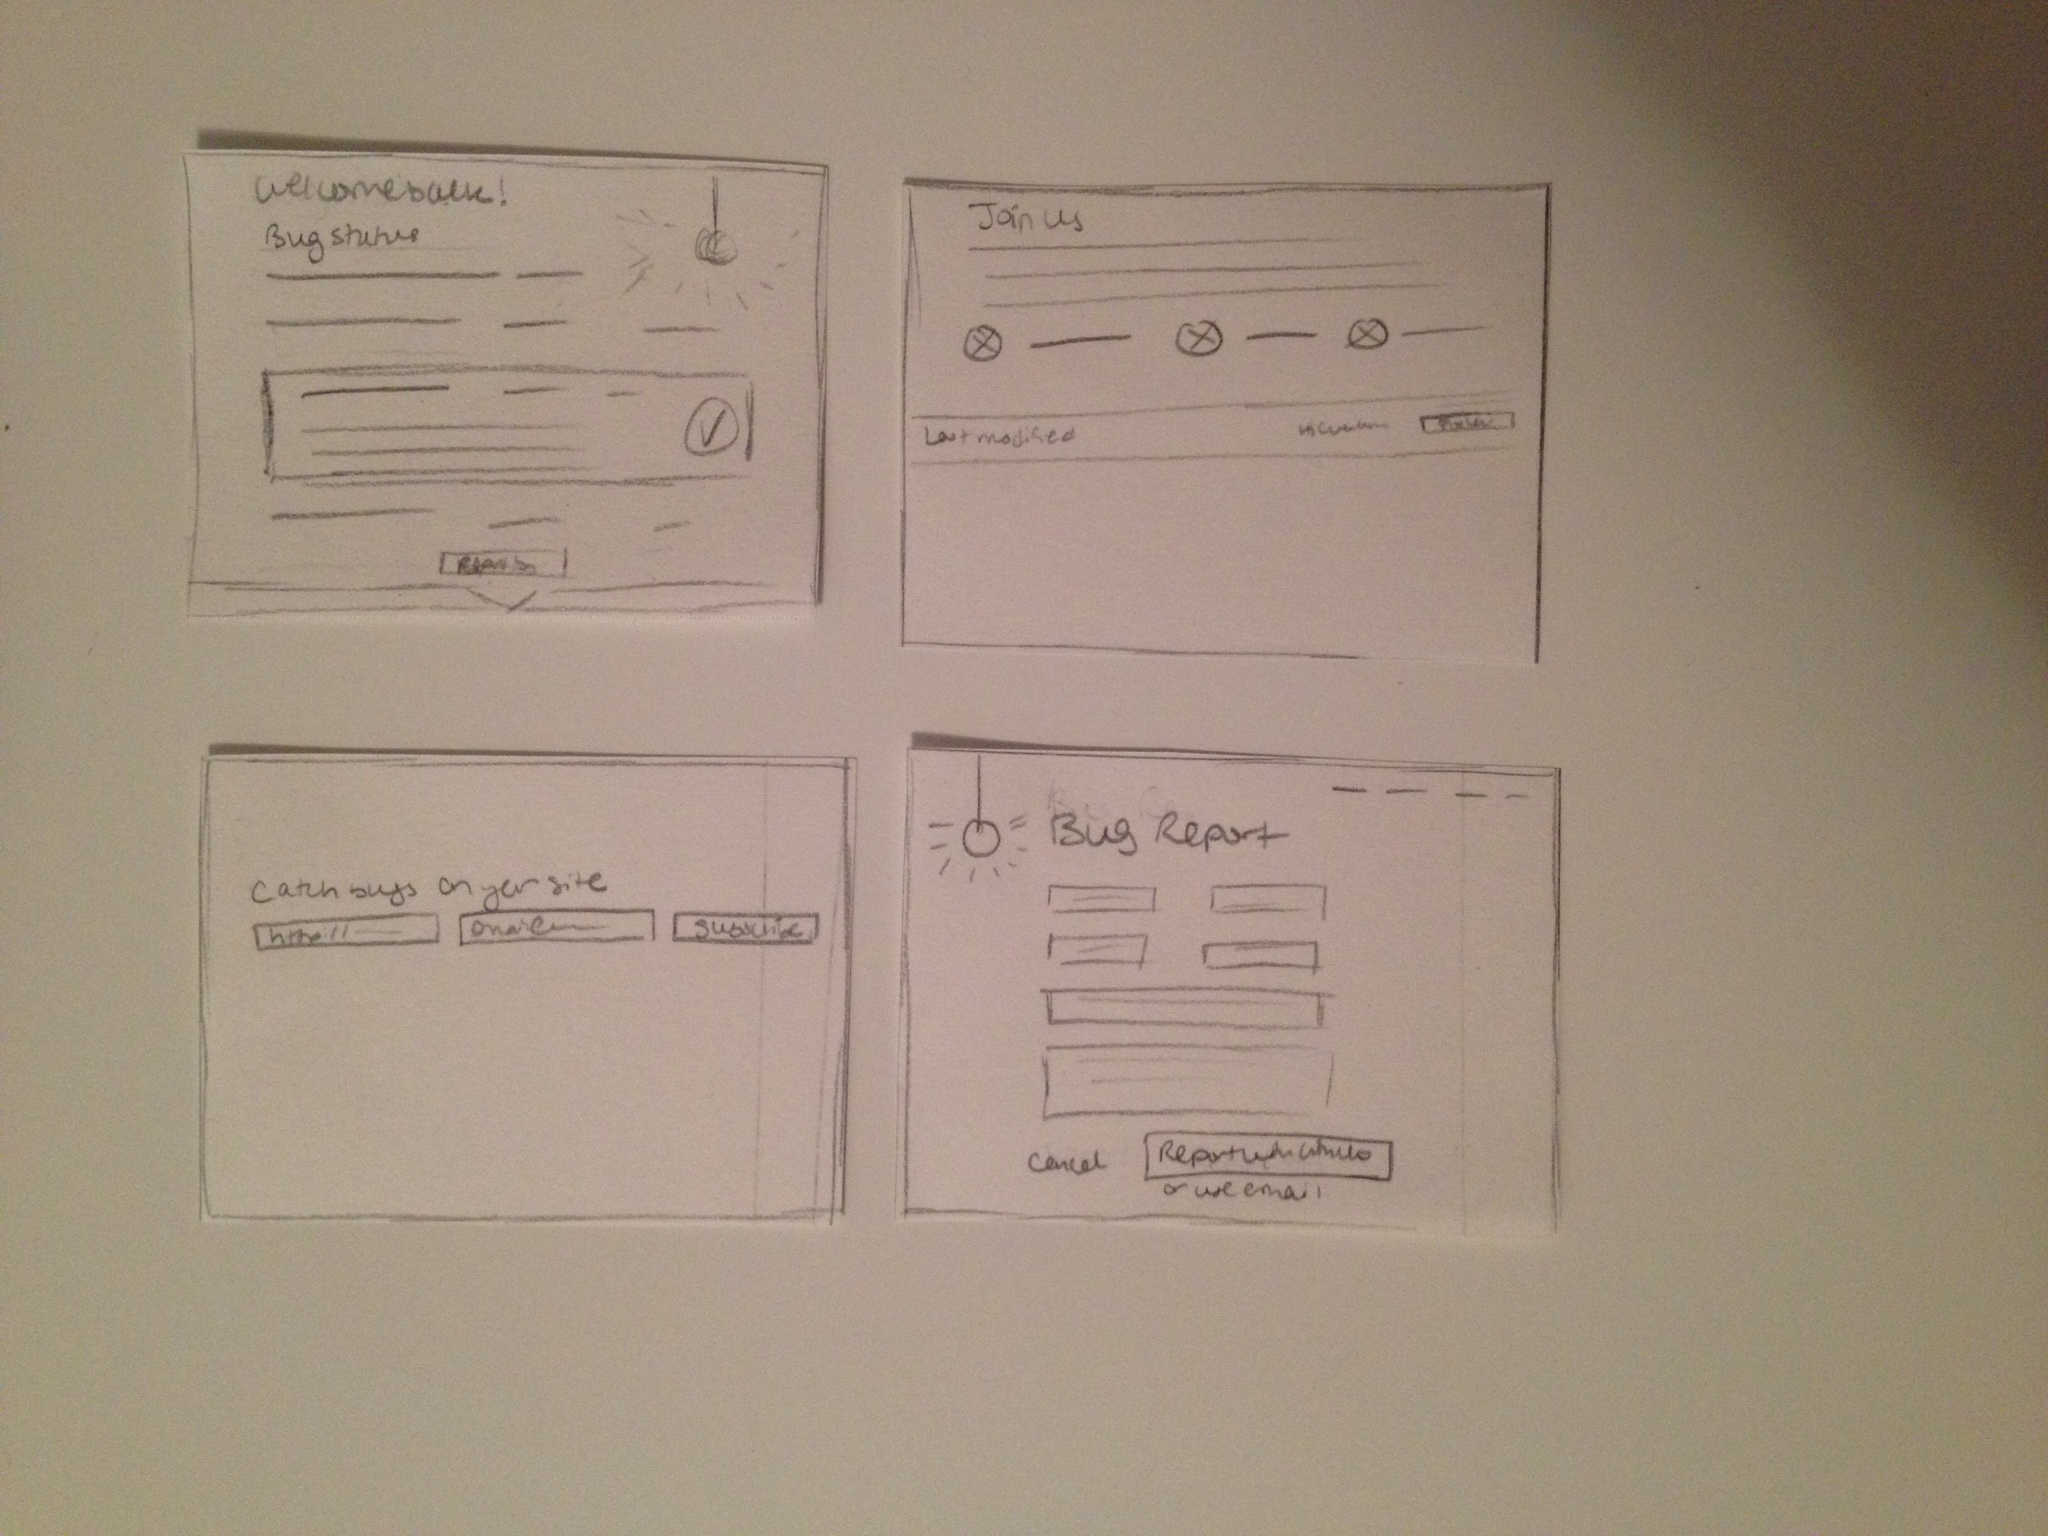 Welcome back!
Bug status
Join us
Last modified
Catch bugs on yer site
http://
email
subscribe
Bug Report
Cancel
Report with
or use email